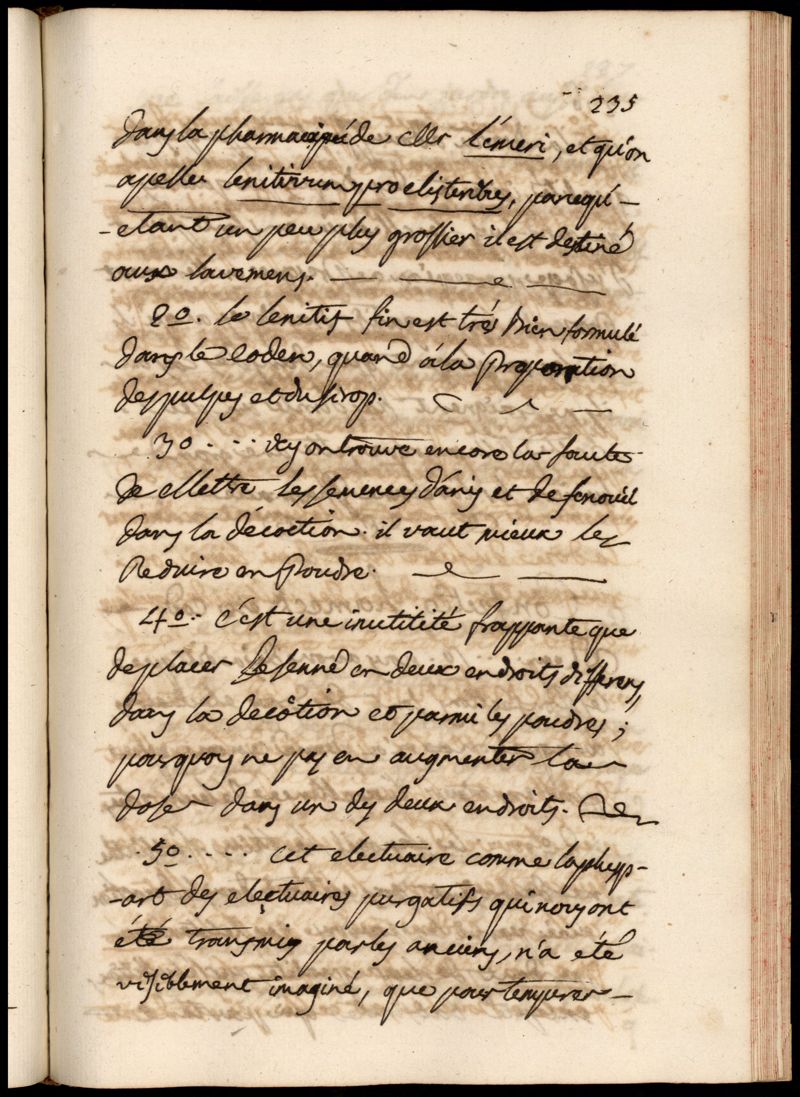 235
dans la pharmacopéé de Mr lémeri, et qu'on
apelle lenitivum pro clisteribus, parcequ'-
-etant un peu plus grossier il est destiné
aux lavemens.
2º. le lenitif fin est trés bien formulé
dans le codex, quand á la Preparation
des pulpes et du sirop.
3º - - - icy on trouve encore la faute
de Mettre les semences d'anis et de fenouil
dans la décoction. il vaut mieux les
Reduire en Poudre.
4º - c'est une inutilité frappante que
de placer Le senné en deux endroits differens,
dans la decôtion et parmi les poudres ;
pourquoy ne pas en augmenter la
dose dans un des deux endroits.
5º - - - - cet electuaire comme la plusp-
-art des electuaires purgatifs qui nous ont
été transmis par les anciens, n'a eté
visiblement imaginé, que pour temperer -